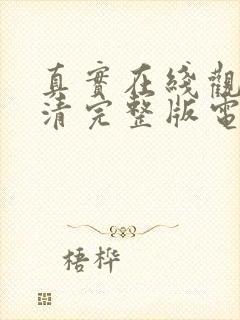 真實在綫觀
清完整版電
梧桦